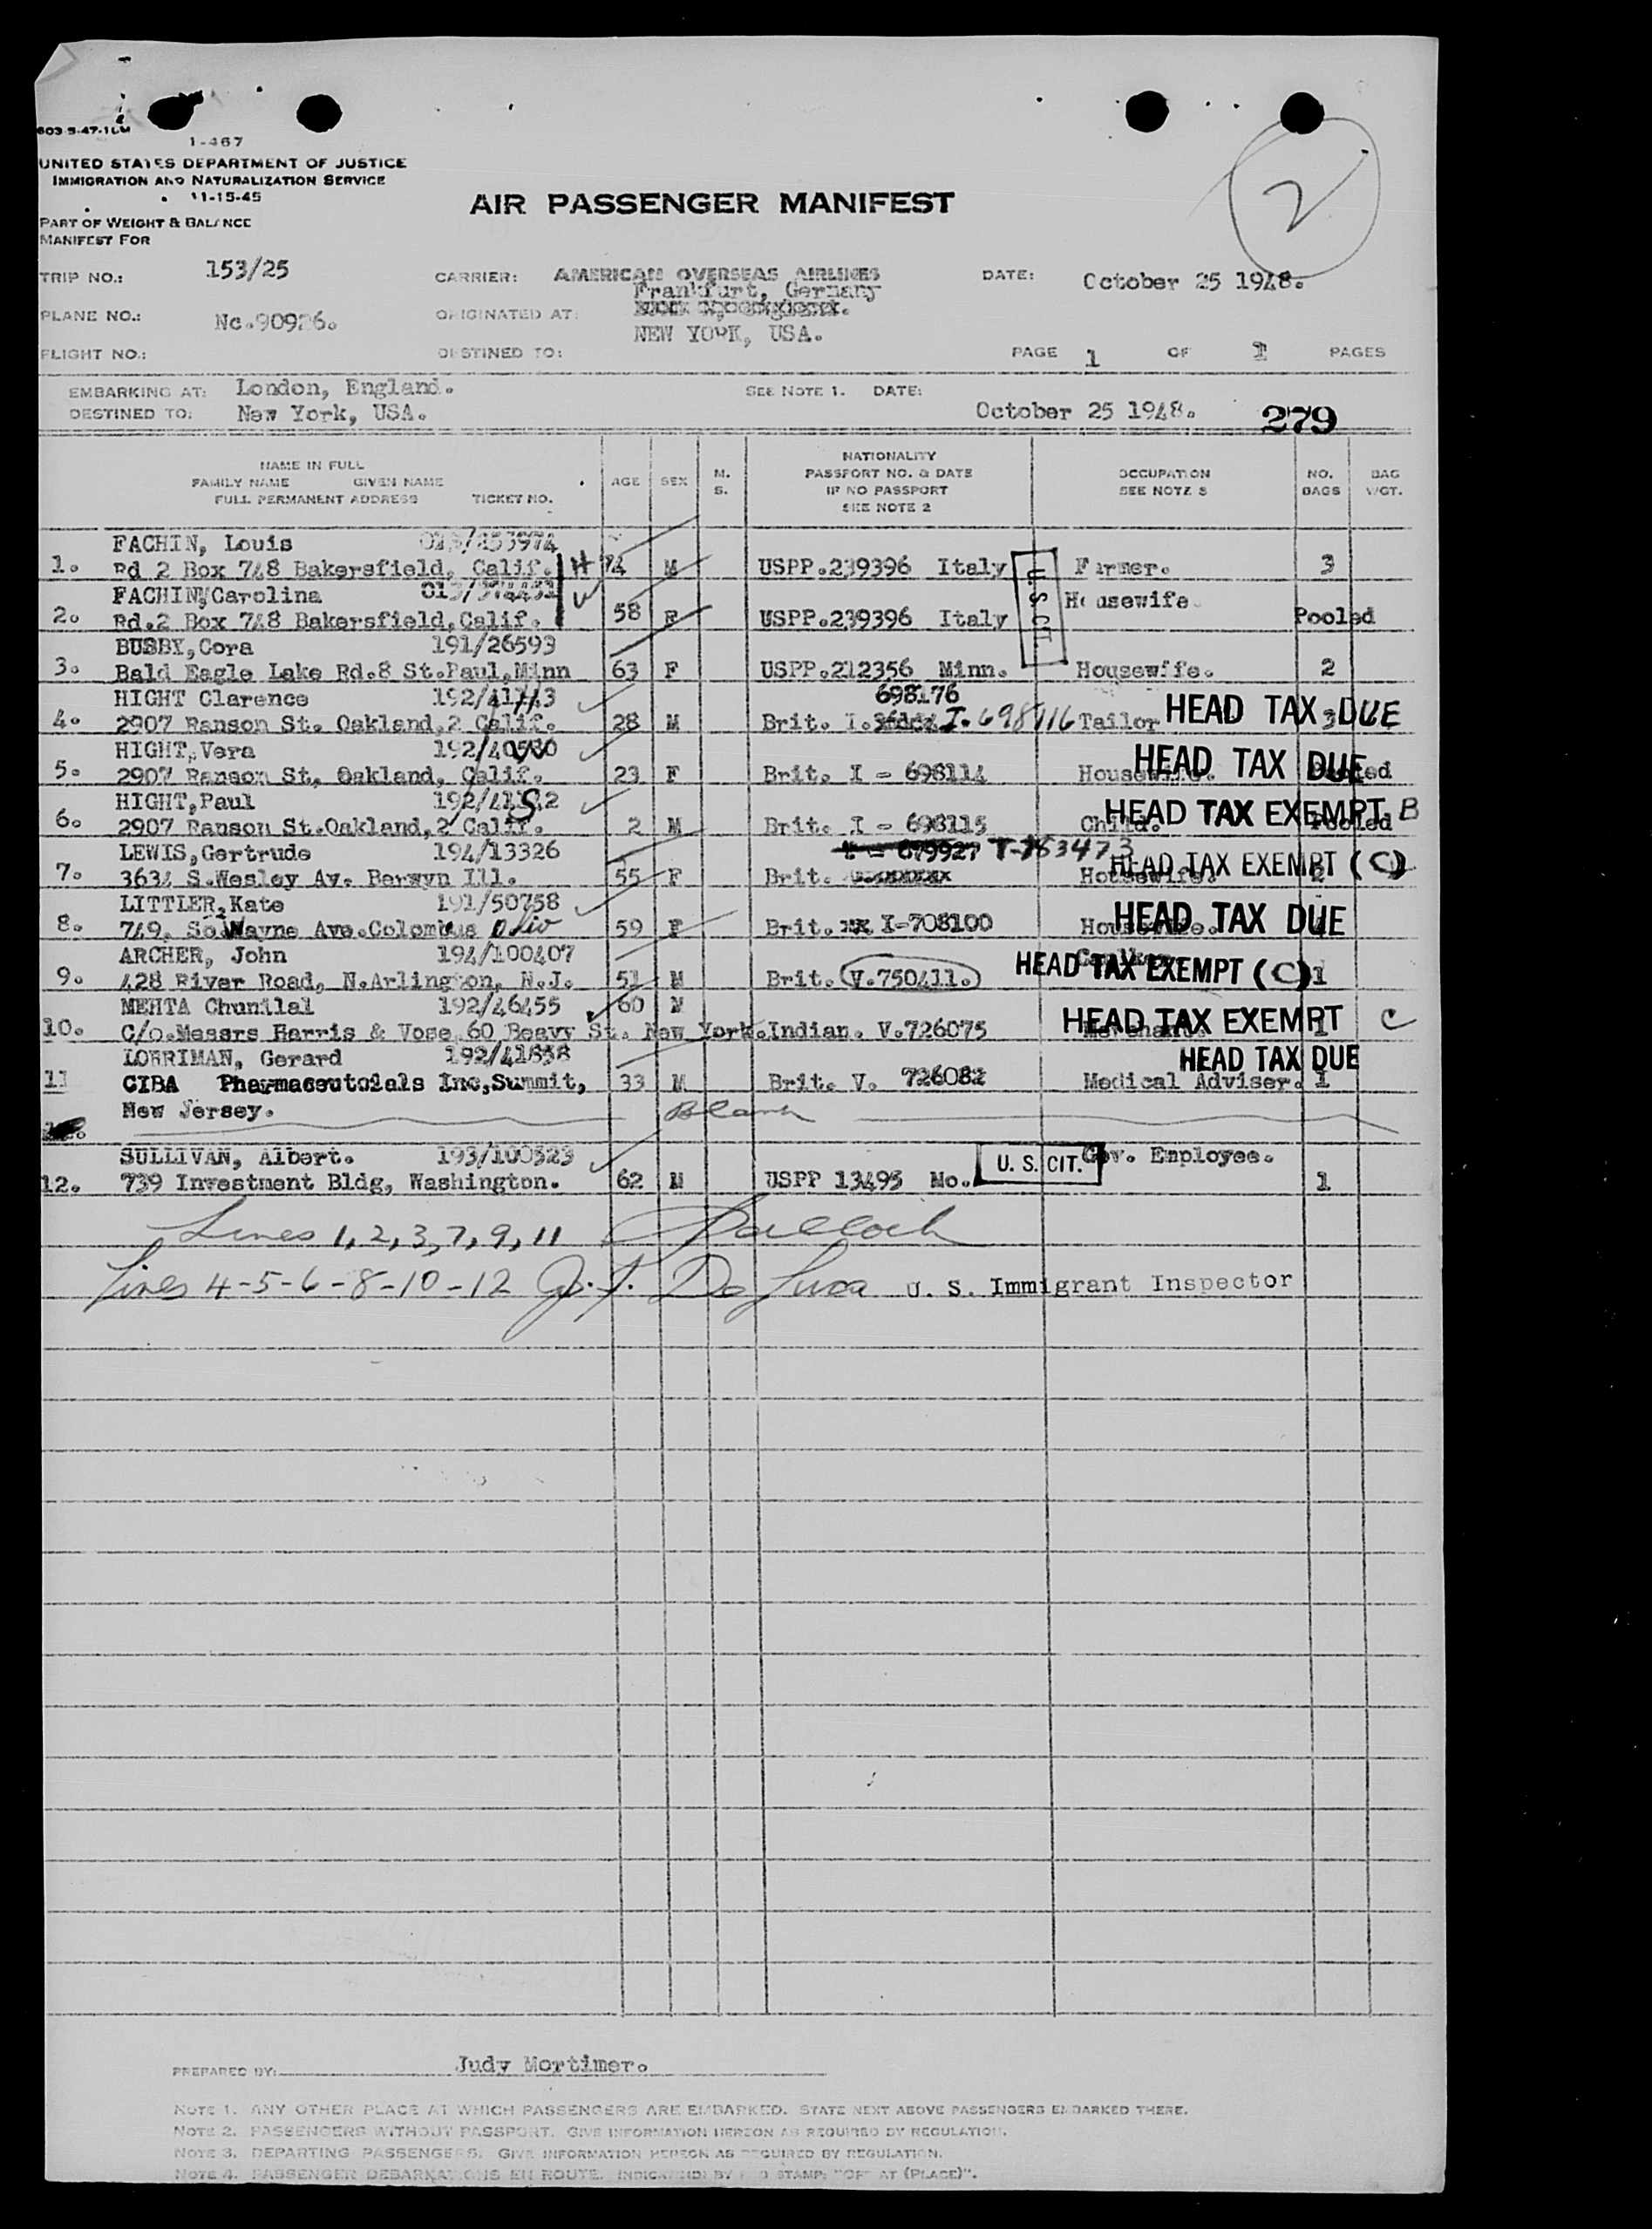 603 5-47-10M
1-467
UNITED STATES DEPARTMENT OF JUSTICE
IMMIGRATION AND NATURALIZATION SERVICE
11-15-45
PART OF WEIGHT & BALANCE
MANIFEST FOR
AIR PASSENGER MANIFEST
2
TRIP NO.: 153/25 CARRIER: AMERICAN OVERSEAS AIRLINES DATE: October 25 1948.
Frankfurt, Germany
PLANE NO.: Nc.90926. ORIGINATED AT:
FLIGHT NO.: DESTINED TO: NEW YORK, USA. PAGE 1 OF 1 PAGES
EMBARKING AT: London, England. SEE NOTE 1. DATE:
DESTINED TO: New York, USA. October 25 1948. 279
NAME IN FULL
FAMILY NAME GIVEN NAME
FULL PERMANENT ADDRESS TICKET NO. AGE SEX M. S. NATIONALITY PASSPORT NO. & DATE IF NO PASSPORT SEE NOTE 2 OCCUPATION SEE NOTE 3 NO. BAGS BAG WGT.
FACHIN, Louis
1. Rd 2 Box 748 Bakersfield, Calif. H 74 M USPP.239396 Italy U.S.CIT. Farmer. 3
FACHIN, Carolina W
2. Rd.2 Box 748 Bakersfield, Calif. 58 F USPP.239396 Italy Housewife. Pooled
BUSBY, Cora 191/26593
3. Bald Eagle Lake Rd.8 St.Paul, Minn 63 F USPP.212356 Minn. Housewife. 2
HIGHT Clarence 698176
4. 2907 Ranson St. Oakland, 2 Calif. 28 M Brit. I. I.698116 Tailor HEAD TAX DUE 3
HIGHT, Vera
5. 2907 Ranson St, Oakland, Calif. 23 F Brit. I - 698114 Housewife. HEAD TAX DUE Pooled
HIGHT, Paul
6. 2907 Ranson St. Oakland, 2 Calif. 2 M Brit. I - 698115 Child. HEAD TAX EXEMPT B Pooled
LEWIS, Gertrude 194/13326 I - 679927 T-753473
7. 3634 S.Wesley Av. Berwyn Ill. 55 F Brit. Housewife. HEAD TAX EXEMPT (C) 2
LITTLER, Kate 191/50758
8. 749. So Wayne Ave. Colombus Ohio 59 F Brit. I-708100 Housewife. HEAD TAX DUE
ARCHER, John 194/100407
9. 428 River Road, N.Arlington, N.J. 51 M Brit. V.750411. HEAD TAX EXEMPT (C) 1
MEHTA Chunilal 192/46455 60 M
10. C/o.Messrs Harris & Vose 60 Beavy St. New York. Indian. V.726075 Merchant. HEAD TAX EXEMPT C 1
LORRIMAN, Gerard 192/41838 HEAD TAX DUE
11 CIBA Pharmaceutoials Inc, Summit, 33 M Brit. V. 726082 Medical Adviser. 1
New Jersey.
Blank
SULLIVAN, Albert. 193/100523 U. S. CIT. Gov. Employee.
12. 739 Investment Bldg, Washington. 62 M USPP 13495 Mo. 1
Lines 1, 2, 3, 7, 9, 11
Lines 4-5-6-8-10-12 J. J. De Luca U. S. Immigrant Inspector
PREPARED BY: Judy Mortimer.
NOTE 1. ANY OTHER PLACE AT WHICH PASSENGERS ARE EMBARKED. STATE NEXT ABOVE PASSENGERS EMBARKED THERE.
NOTE 2. PASSENGERS WITHOUT PASSPORT. GIVE INFORMATION HEREON AS REQUIRED BY REGULATION.
NOTE 3. DEPARTING PASSENGERS. GIVE INFORMATION HEREON AS REQUIRED BY REGULATION.
NOTE 4. PASSENGER DEBARKATIONS EN ROUTE. INDICATED BY STAMP: "OFF AT (PLACE)".